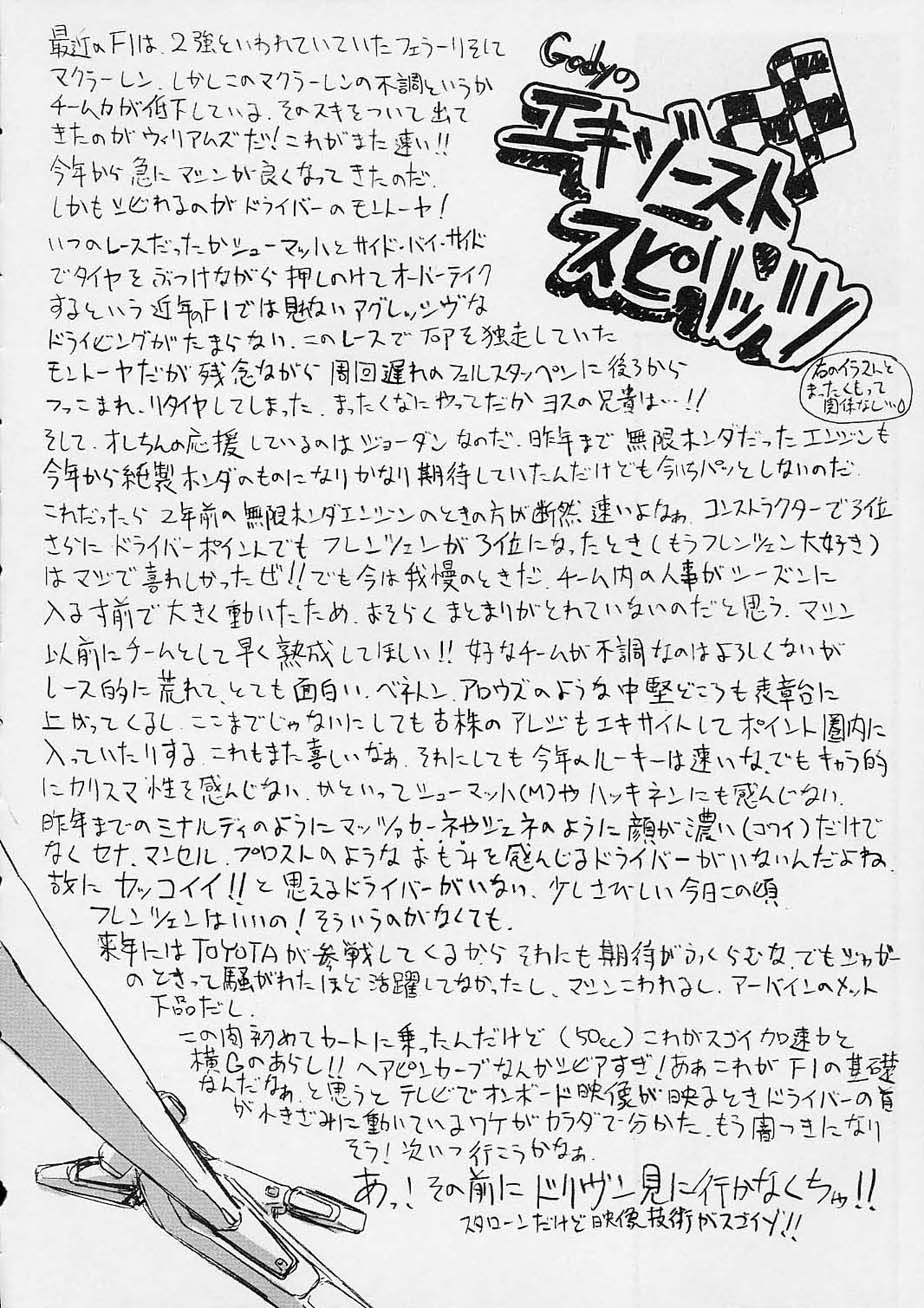 Godyの
エキゾースト
スピリッツ
右のイラストと
まったくもって
関係なし…
最近のF1は、2強といわれていていたフェラーリそして
マクラーレン、しかしこのマクラーレンの不調というか
チーム力が低下している、そのスキをついて出て
きたのがウィリアムズだ!これがまた速い!!
今年から急にマシンが良くなってきたのだ、
しかもシビれるのがドライバーのモントーヤ!
いつのレースだったかシューマッハとサイド・バイ・サイド
でタイヤをぶつけながら押しのけてオーバーテイク
するという近年のF1では見ないアグレッシヴな
ドライビングがたまらない、このレースでTOPを独走していた
モントーヤだが残念ながら周回遅れのフェルスタッペンに後ろから
つっこまれ、リタイヤしてしまった、まったくなにやってだかヨスの兄貴は…!!
そして、オレちんの応援しているのはジョーダンなのだ、昨年まで無限ホンダだったエンジンも
今年から純製ホンダのものになりかなり期待していたんだけども今いちパッとしないのだ、
これだったら2年前の無限ホンダエンジンのときの方が断然速いよなぁ、コンストラクターで3位
さらにドライバーポイントでもフレンツェンが3位になったとき(もうフレンツェン大好き)
はマジで喜れしかったぜ!!でも今は我慢のときだ、チーム内の人事がシーズンに
入るす前で大きく動いたため、おそらくまとまりがとれていないのだと思う、マシン
以前にチームとして早く熟成してほしい!!好なチームが不調なのはよろしくないが
レース的に荒れて、とても面白い、ベネトン、アロウズのような中堅どころも表章台に
上がってくるし、ここまでじゃないにしても古株のアレジもエキサイトしてポイント圏内に
入っていたりする、これもまた喜しいなぁ、それにしても今年のルーキーは速いな、でもキャラ的
にカリスマ性を感んじない、かといってシューマッハ(M)やハッキネンにも感んじない、
昨年までのミナルディのようにマッツァカーネやジェネのように顔が濃い(コワイ)だけで
なくセナ、マンセル、プロストのようなおもみを感んじるドライバーがいないんだよね
故にカッコイイ!!と思えるドライバーがいない、少しさびしい今日この頃
フレンツェンはいいの!そういうのがなくても、
来年にはTOYOTAが参戦してくるからそれにも期待がふくらむな、でもジャガー
のときって騒がわたほど活躍してなかったし、マシンこわれるし、アーバインのメット
下品だし、
この間初めてカートに乗ったんだけど(50cc)これがスゴイ加速力と
横Gのあらし!!ヘアピンカーブなんかシビアすぎ!あぁこれがF1の基礎
なんだなぁ、と思うとテレビでオンボード映像が映るときドライバーの首
が小きざみに動いているワケがカラダで分かた、もう病つきになり
そう!次いつ行こうかなぁ、
あっ!その前にドリヴン見に行かなくちゃ!!
スタローンだけど映像技術がスゴイゾ!!